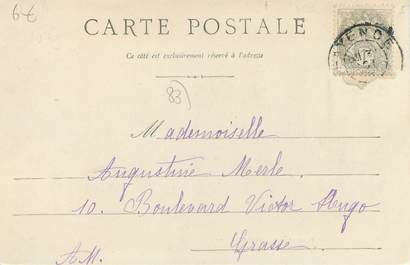 6€
CARTE POSTALE
Ce côté est exclusivement réservé à l'adresse
83
Mademoiselle
Augustine Merle
10. Boulevard Victor Hugo
Grasse
A.M.